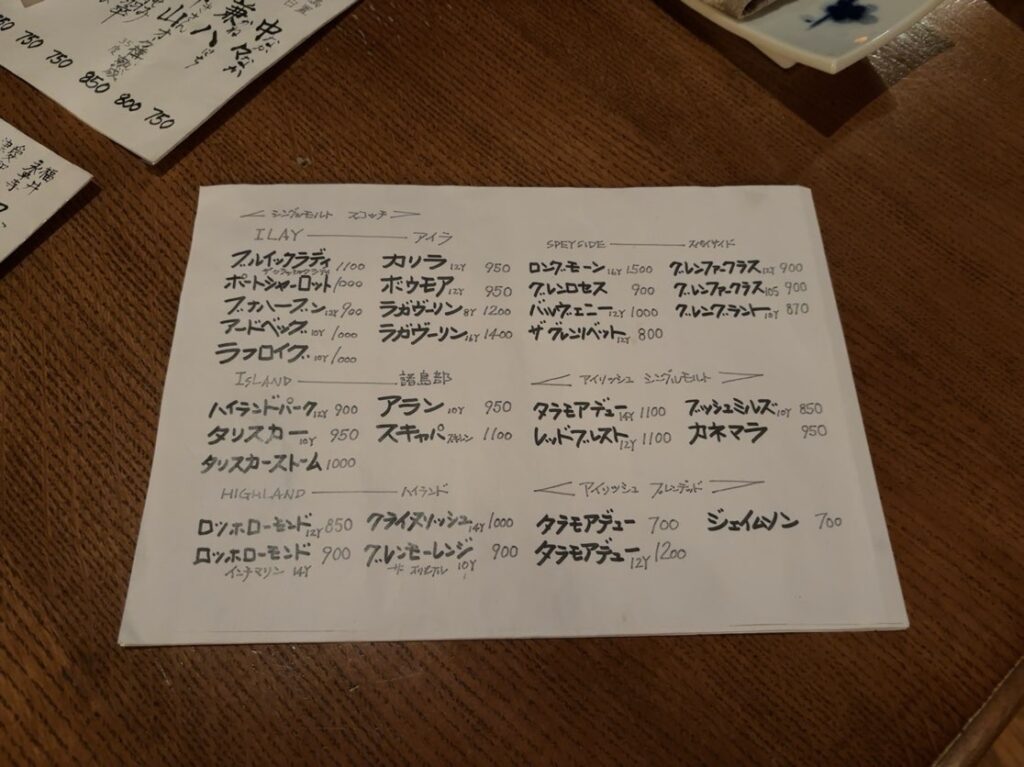 中々 なかなか
兼八
山
750 750 750 850 800 750
福井
永平寺
＜シングルモルト スコッチ＞
ILAY ——— アイラ
ブルイックラディ 1100 カリラ 12Y 950
ザ クラシックラディ
ポートシャーロット 1000 ボウモア 12Y 950
ブナハーブン 12Y 900 ラガヴーリン 8Y 1200
アードベッグ 10Y 1000 ラガヴーリン 16Y 1400
ラフロイグ 10Y 1000
ISLAND ——— 諸島部
ハイランドパーク 12Y 900 アラン 10Y 950
タリスカー 10Y 950 スキャパ スキレン 1100
タリスカーストーム 1000
HIGHLAND ——— ハイランド
ロッホローモンド 12Y 850 クライヌリッシュ 14Y 1000
ロッホローモンド 900 グレンモーレンジ 10Y 900
インチマリン 14Y ザ
SPEYSIDE ——— スペイサイド
ロングモーン 16Y 1500 グレンファークラス 12Y 900
グレンロセス 900 グレンファークラス 105 900
バルヴェニー 12Y 1000 グレングラント 10Y 870
ザ グレンリベット 12Y 800
＜アイリッシュ シングルモルト＞
タラモアデュー 14Y 1100 ブッシュミルズ 10Y 850
レッドブレスト 12Y 1100 カネマラ 950
＜アイリッシュ ブレンデッド＞
タラモアデュー 700 ジェイムソン 700
タラモアデュー 12Y 1200